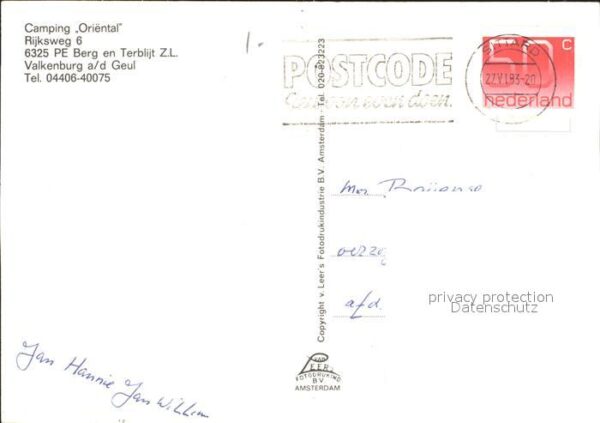 Camping „Oriëntal"
Rijksweg 6
6325 PE Berg en Terblijt Z.L.
Valkenburg a/d Geul
Tel. 04406-40075
1.-
POSTCODE
even doen.
SITTARD
22.VI.83-20
50 c
nederland
Copyright v. Leer's Fotodrukindustrie B.V. Amsterdam - Tel. 020-823223
afd.
privacy protection
Datenschutz
Jan Hannie
Jan Willem
VAN
LEER'S
FOTODRUKIND
B.V.
AMSTERDAM